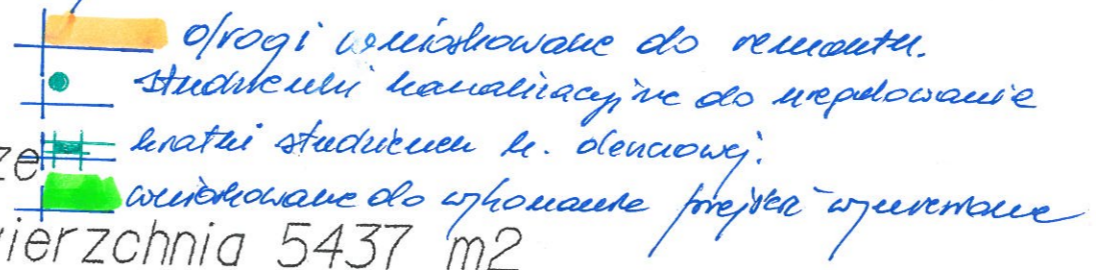 drogi wnioskowane do remontu.
studzienki kanalizacyjne do uregulowania
kratki studzienek k. deszczowej.
ze
wnioskowane do wykonania przejścia wyniesione
ierzchnia 5437 m2